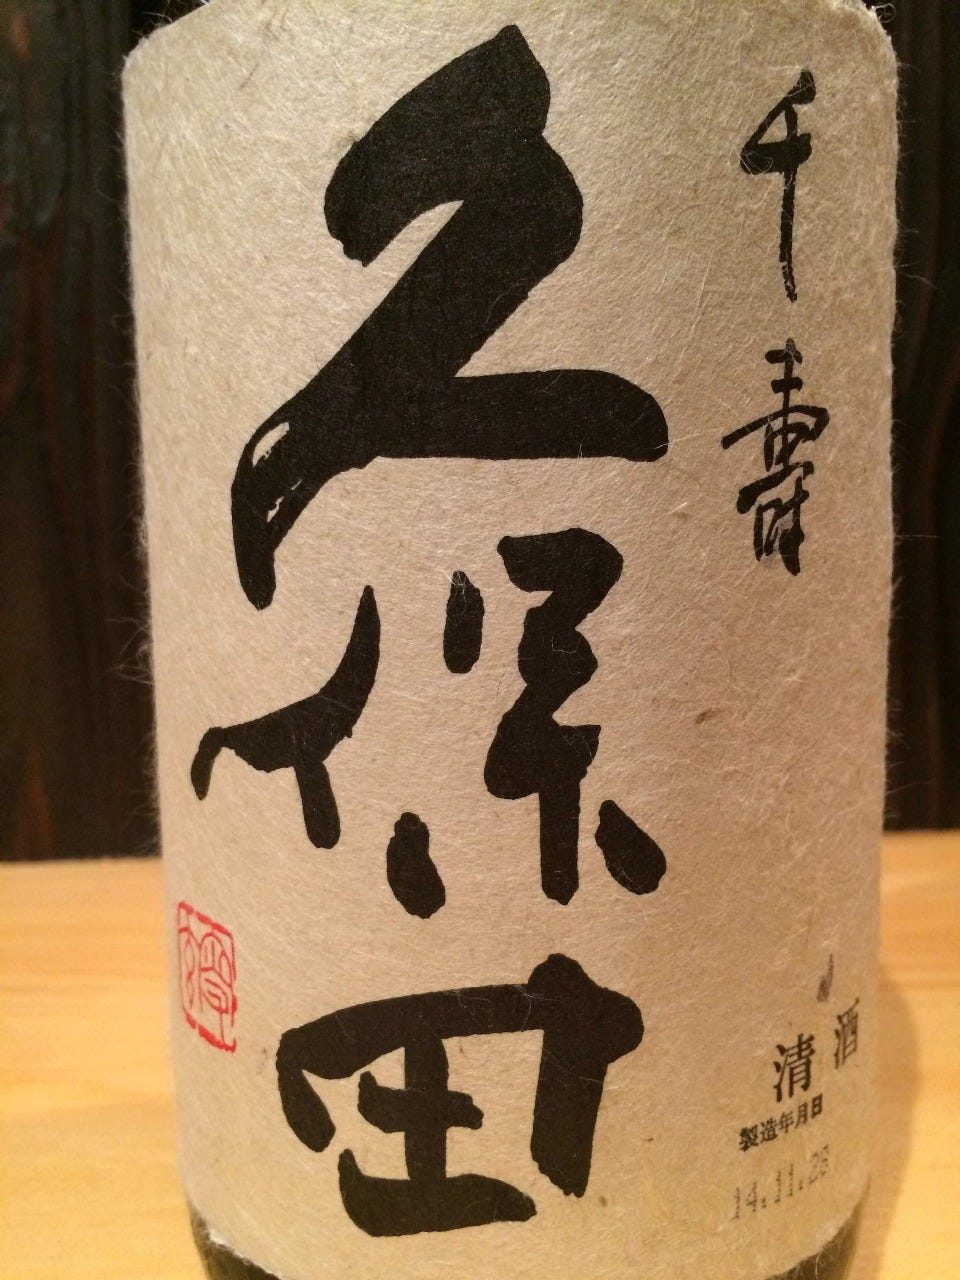 千壽
久保田
清酒
製造年月日
14.11.28